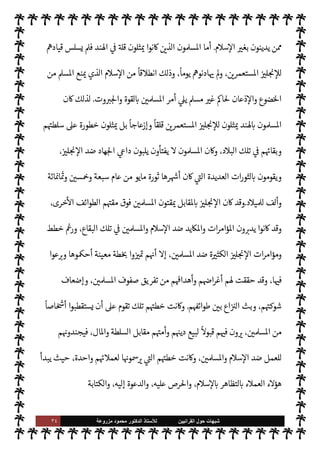 ممن يدينون بغير الإسلام. أما المسلمون الذين كانوا يمثلون قلة في الهند فلم يسلس قيادهم
للإنجليز المستعمرين، ولم يهادنوهم يوماً، وذلك انطلاقاً من الإسلام الذي يمنع المسلم من
الخضوع والإذعان لحاكم غير مسلم يلي أمر المسلمين بالقوة والجبروت. لذلك كان
المسلمون بالهند يمثلون للإنجليز المستعمرين قلقاً وإزعاجاً بل يمثلون خطورة على سلطتهم
وبقائهم في تلك البلاد، وكان المسلمون لا يفتأون يلبون داعي الجهاد ضد الإنجليز،
ويقومون بالثورات العديدة التي كان أشهرها ثورة مايو من عام سبعة وخمسين وثمانمائة
وألف للميلاد.وقد كان الإنجليز بالمقابل يمقتون المسلمين فوق مقتهم الطوائف الأخرى،
وقد كانوا يديرون المؤامرات والمكايد ضد الإسلام والمسلمين في تلك البقاع، ورغم خطط
ومؤامرات الإنجليز الكثيرة ضد المسلمين، إلا أنهم تميزوا بخطة معينة أحكموها وبرعوا
فيها، وقد حققت لهم أغراضهم وأهدافهم من تفريق صفوف المسلمين، وإضعاف
شوكتهم، وبث النزاع بين طوائفهم. وكانت خطتهم تلك تقوم على أن يستقطبوا أشخاصاً
من المسلمين، يرون فيهم قبولاً لبيع دينهم وأمتهم مقابل السلطة والمال، فيجندونهم
للعمل ضد الإسلام والمسلمين، وكانت خطتهم التي يرسمونها لعملائهم واحدة، حيث يبدأ
هؤلاء العملاء بالتظاهر بالإسلام، والحرص عليه، والدعوة إليه، والكتابة
شبهات حول القرآنيين للأستاذ الدكتور محمود مزروعة ٣٤